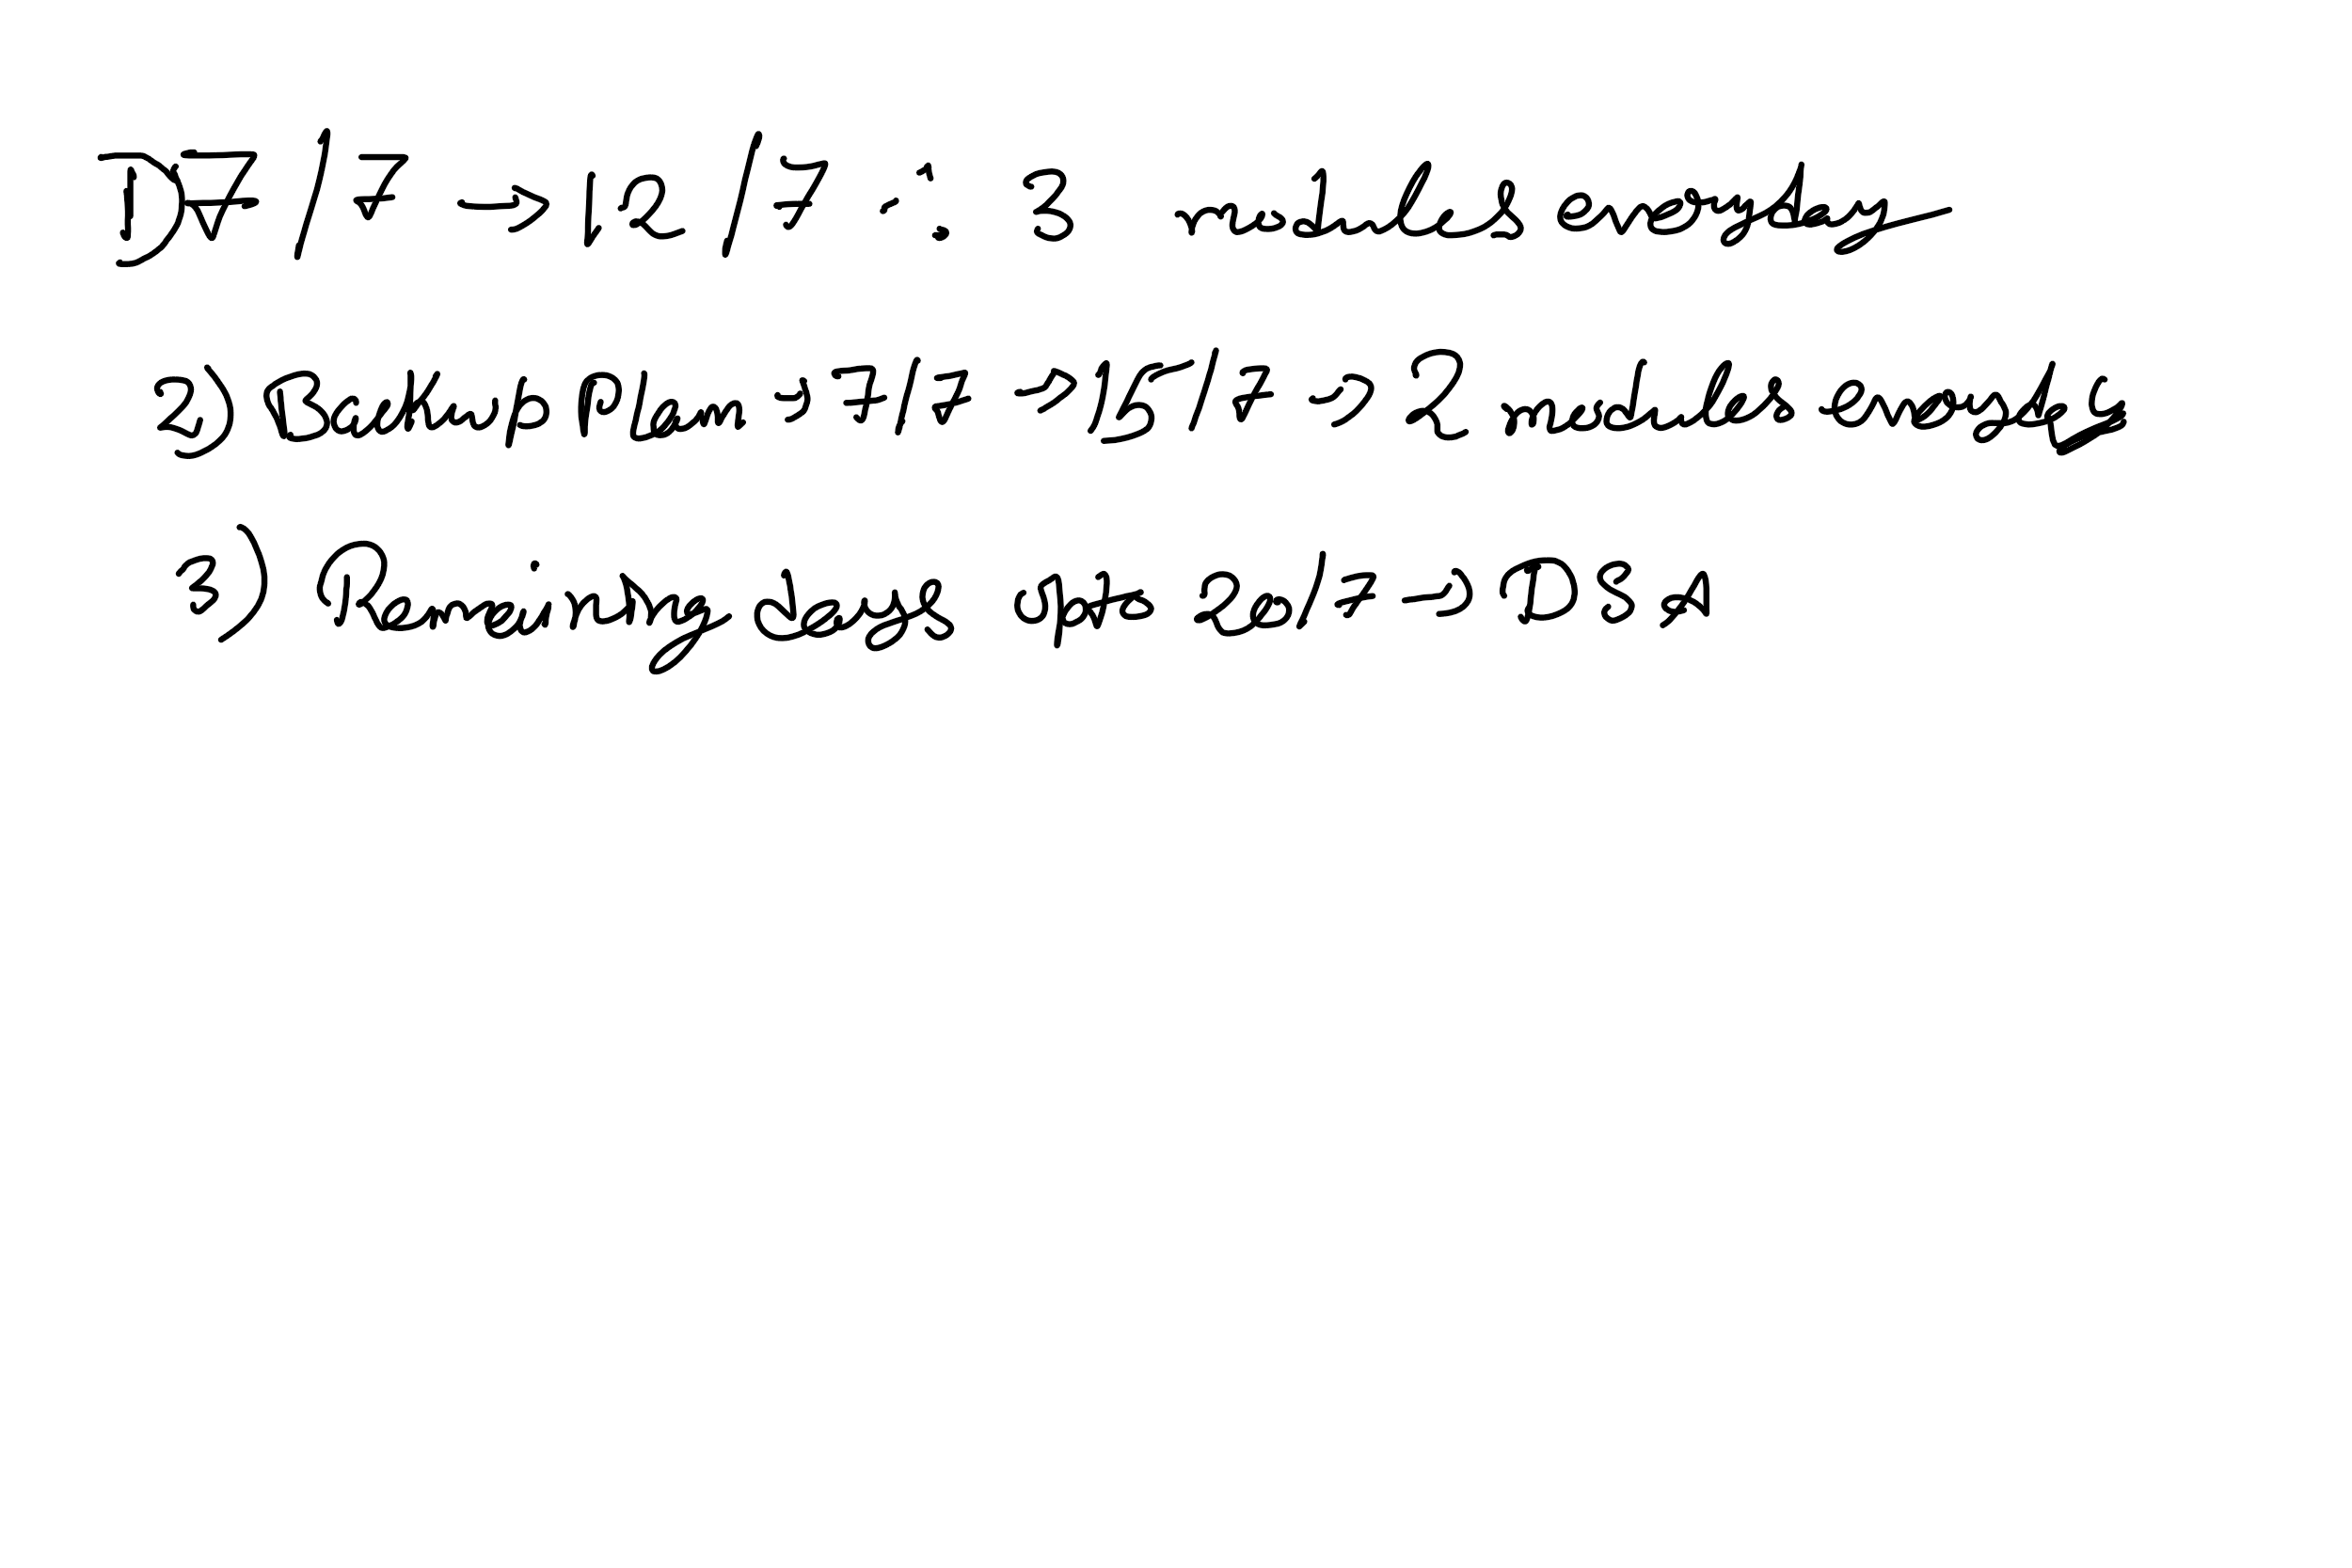 1) 7/7 → 12/7 : 3 modules everyday
2) Backup plan → 7/7 → 15/7 → 2 modules everyday
3) Remaining days upto 20/7 → DSA